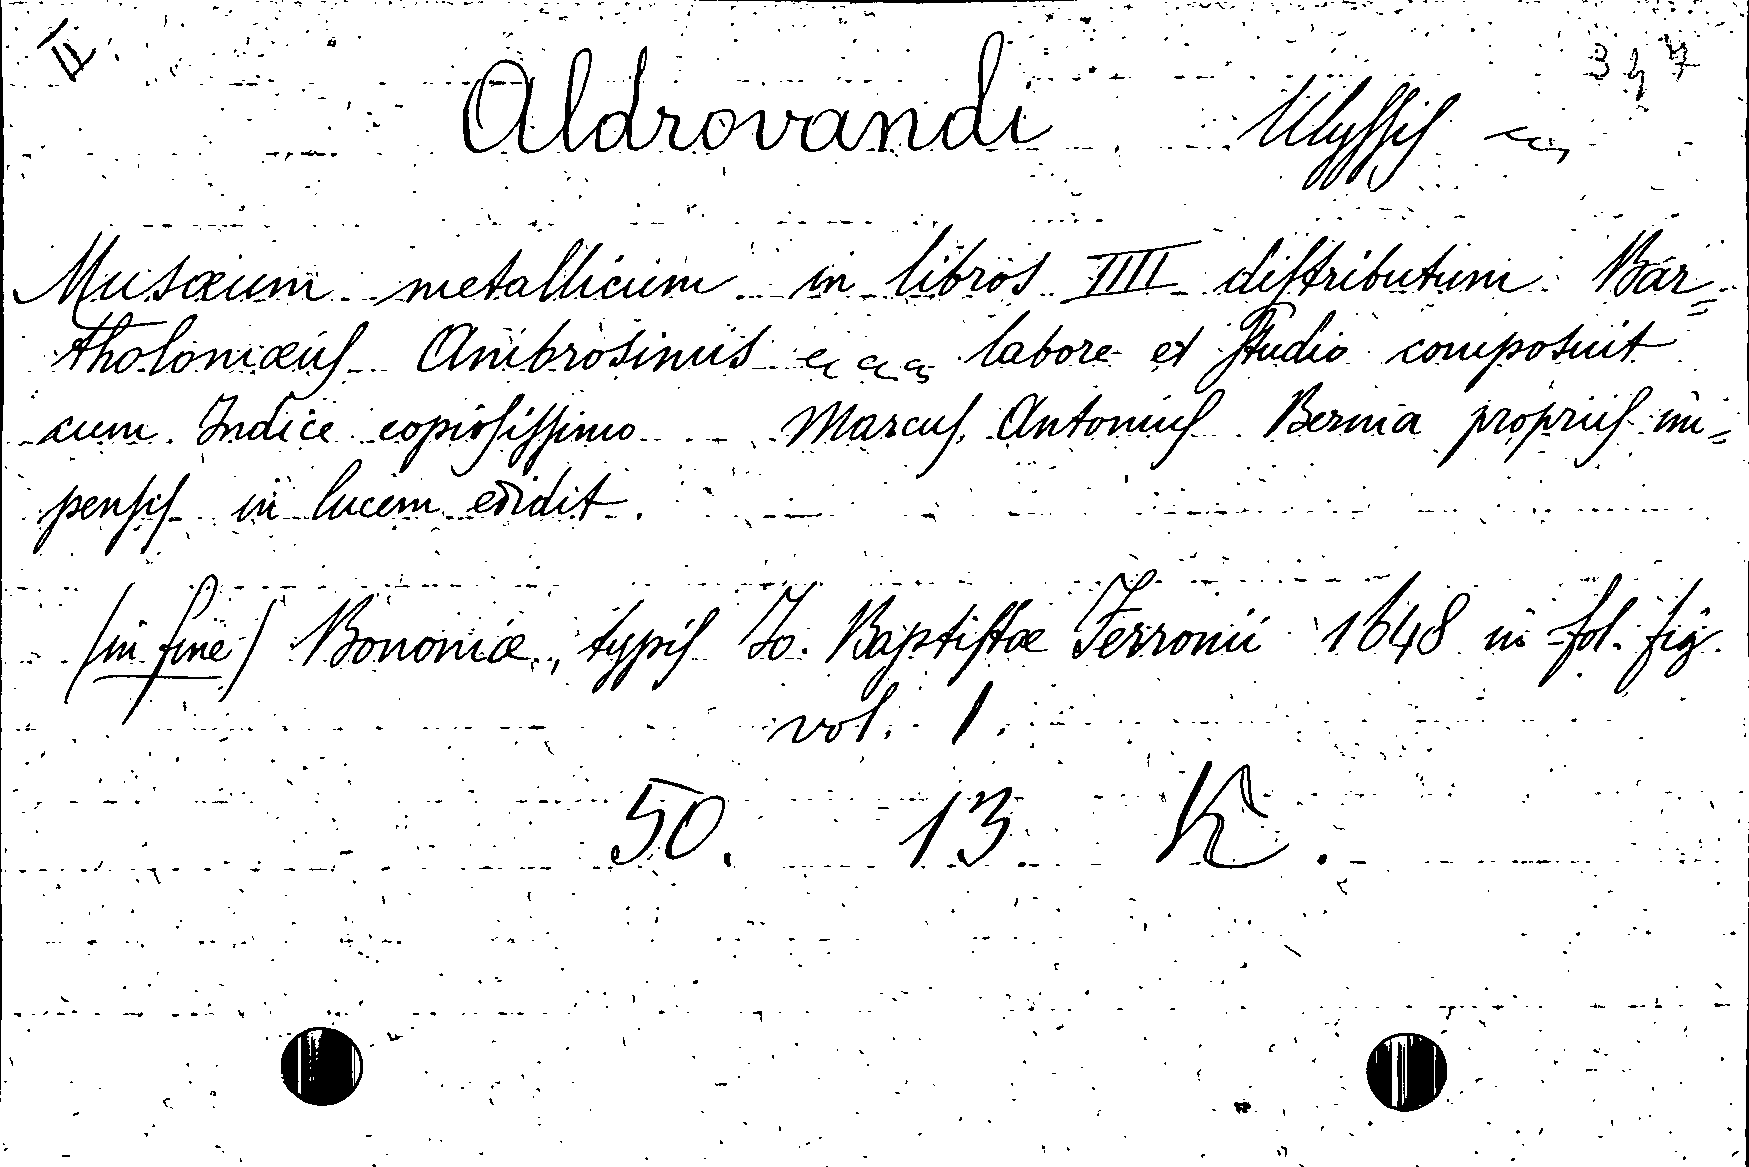 II. 347
Aldrovandi Ulyssis
Musæum metallicum in libros IIII distributum Bar=
tholomæus Ambrosinus labore et Studio composuit
cum Indice copiosissimo Marcus Antonius Bernia propriis im=
pensis in lucem edidit.
(in fine) Bononiæ, typis Jo. Baptistæ Ferronii 1648 in fol. fig.
vol. 1.
50. 13 K.